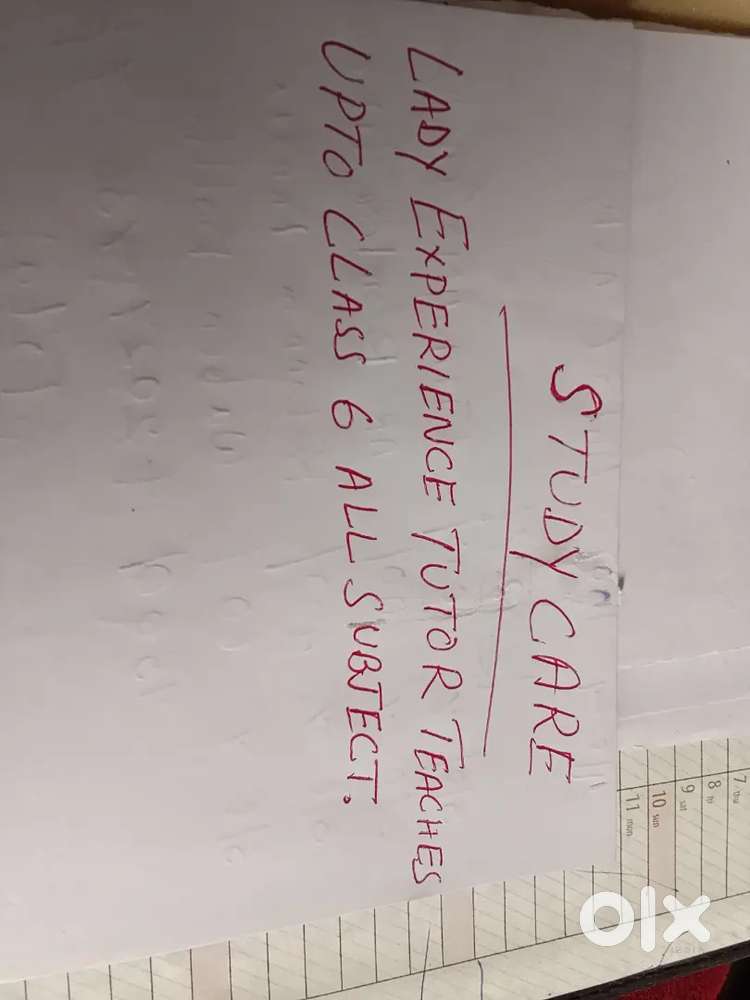 STUDY CARE
LADY EXPERIENCE TUTOR TEACHES
UPTO CLASS 6 ALL SUBJECT.
7 Thu
8 fri
9 sat
10 sun
11 mon
olx